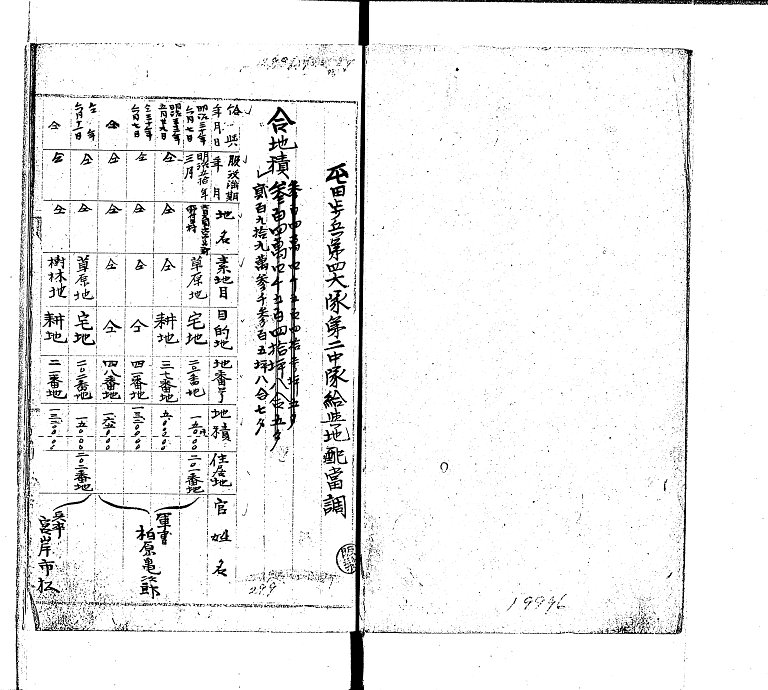 屯田歩兵第四大隊第二中隊給與地配當調
合地積
参百四萬四千五百四拾坪八合五夕
貳百九拾九萬参千参百五坪八合七夕
給與年月日
服役満期年月
地名
素地目
目的地
地番号
地積
住居地
官姓名
明治三十年
六月七日
明治五拾年
三月
草原地
宅地
二〇一番地
一五〇
二〇一番地
仝
仝
仝
耕地
三七番地
五〇〇〇
仝三十年
六月七日
仝
仝
仝
仝
四一番地
仝
仝
仝
仝
仝
四八番地
軍曹
柏原亀次郎
仝年
仝
仝
草原地
宅地
二〇二番地
一五〇
二〇二番地
仝
仝
仝
樹林地
耕地
二一番地
兵卒
宮岸市松
299
19996